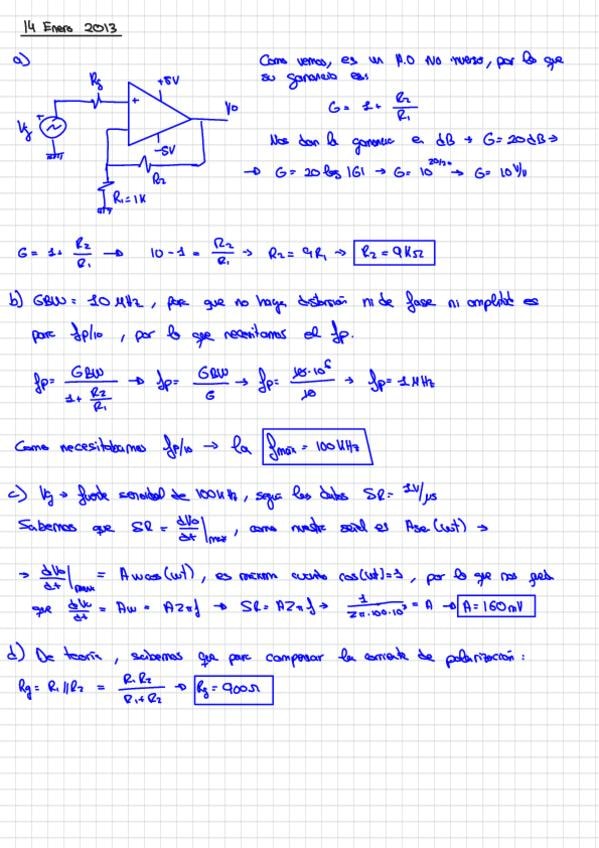 14 Enero 2013
a)
Como vemos, es un A.O No inversor, por lo que
su ganancia es:
Rg
+5V
Vo
Vg
-5V
R2
R1=1K
G = 1 + R2/R1
Nos dan la ganancia en dB → G = 20dB →
→ G = 20 log |G| → G = 10^20/20 → G = 10 V/V
G = 1 + R2/R1 → 10 - 1 = R2/R1 → R2 = 9R1 → R2 = 9KΩ
b) GBW = 10 MHz, para que no haya distorsión ni de fase ni amplitud es
para fp/10, por lo que necesitamos el fp.
fp = GBW/(1 + R2/R1) → fp = GBW/G → fp = 10·10^6/10 → fp = 1MHz
Como necesitabamos fp/10 → la fmax = 100KHz
c) Vg → fuente senoidal de 100KHz, según los datos SR = 1V/μs
Sabemos que SR = dVo/dt|max, como nuestra señal es Asen(wt) →
→ dVo/dt|max = Awcos(wt), es máxima cuando cos(wt)=1, por lo que nos queda
que dVo/dt = Aw = A2πf → SR = A2πf → 1/2π·100·10³ = A → A = 160mV
d) De teoría, sabemos que para compensar la corriente de polarización:
Rg = R1//R2 = R1R2/R1+R2 → Rg = 900Ω